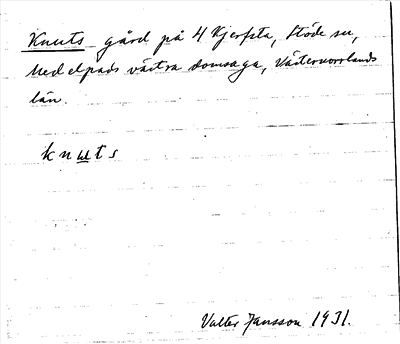 Knuts gård på 4 Kjersta, Stöde sn,
Medelpads västra domsaga, Västernorrlands
län.
knuts
Valter Jansson 1931.